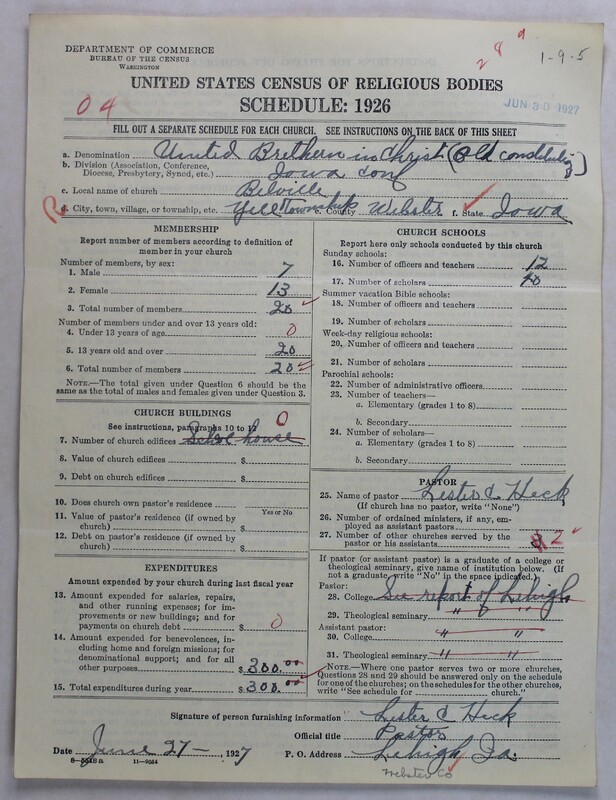 289
1-9-5
DEPARTMENT OF COMMERCE
BUREAU OF THE CENSUS
WASHINGTON
UNITED STATES CENSUS OF RELIGIOUS BODIES
04
SCHEDULE: 1926
JUN 30 1927
FILL OUT A SEPARATE SCHEDULE FOR EACH CHURCH. SEE INSTRUCTIONS ON THE BACK OF THIS SHEET
a. Denomination United Brethern in Christ (Old
b. Division (Association, Conference, Diocese, Presbytery, Synod, etc.) Iowa conf
c. Local name of church Belville
d. City, town, village, or township, etc. Yell township e. County Webster f. State Iowa
MEMBERSHIP
Report number of members according to definition of
member in your church
Number of members, by sex:
1. Male 7
2. Female 13
3. Total number of members 20
Number of members under and over 13 years old:
4. Under 13 years of age 0
5. 13 years old and over 20
6. Total number of members 20
NOTE.—The total given under Question 6 should be the
same as the total of males and females given under Question 3.
CHURCH BUILDINGS
See instructions, paragraphs 10 to 12
0
7. Number of church edifices School house
8. Value of church edifices $
9. Debt on church edifices $
10. Does church own pastor's residence
Yes or No
11. Value of pastor's residence (if owned by
church) $
12. Debt on pastor's residence (if owned by
church) $
EXPENDITURES
Amount expended by your church during last fiscal year
13. Amount expended for salaries, repairs,
and other running expenses; for im-
provements or new buildings; and for
payments on church debt $ 0
14. Amount expended for benevolences, in-
cluding home and foreign missions; for
denominational support; and for all
other purposes $ 300.00
15. Total expenditures during year $ 300.00
CHURCH SCHOOLS
Report here only schools conducted by this church
Sunday schools:
16. Number of officers and teachers 12
17. Number of scholars
Summer vacation Bible schools:
18. Number of officers and teachers
19. Number of scholars
Week-day religious schools:
20. Number of officers and teachers
21. Number of scholars
Parochial schools:
22. Number of administrative officers
23. Number of teachers—
a. Elementary (grades 1 to 8)
b. Secondary
24. Number of scholars—
a. Elementary (grades 1 to 8)
b. Secondary
PASTOR
25. Name of pastor Lester C Heck
(If church has no pastor, write "None")
26. Number of ordained ministers, if any, em-
ployed as assistant pastors
27. Number of other churches served by the
pastor or his assistants 2
If pastor (or assistant pastor) is a graduate of a college or
theological seminary, give name of institution below. (If
not a graduate write "No" in the space indicated.)
Pastor:
28. College See report of Lehigh
29. Theological seminary " " "
Assistant pastor:
30. College " "
31. Theological seminary " "
NOTE.—Where one pastor serves two or more churches,
Questions 28 and 29 should be answered only on the schedule
for one of the churches; on the schedules for the other churches,
write "See schedule for church."
Signature of person furnishing information Lester C Heck
Official title Pastor
Date June 27 - , 1927 P. O. Address Lehigh Ia.
11-9054
Webster Co